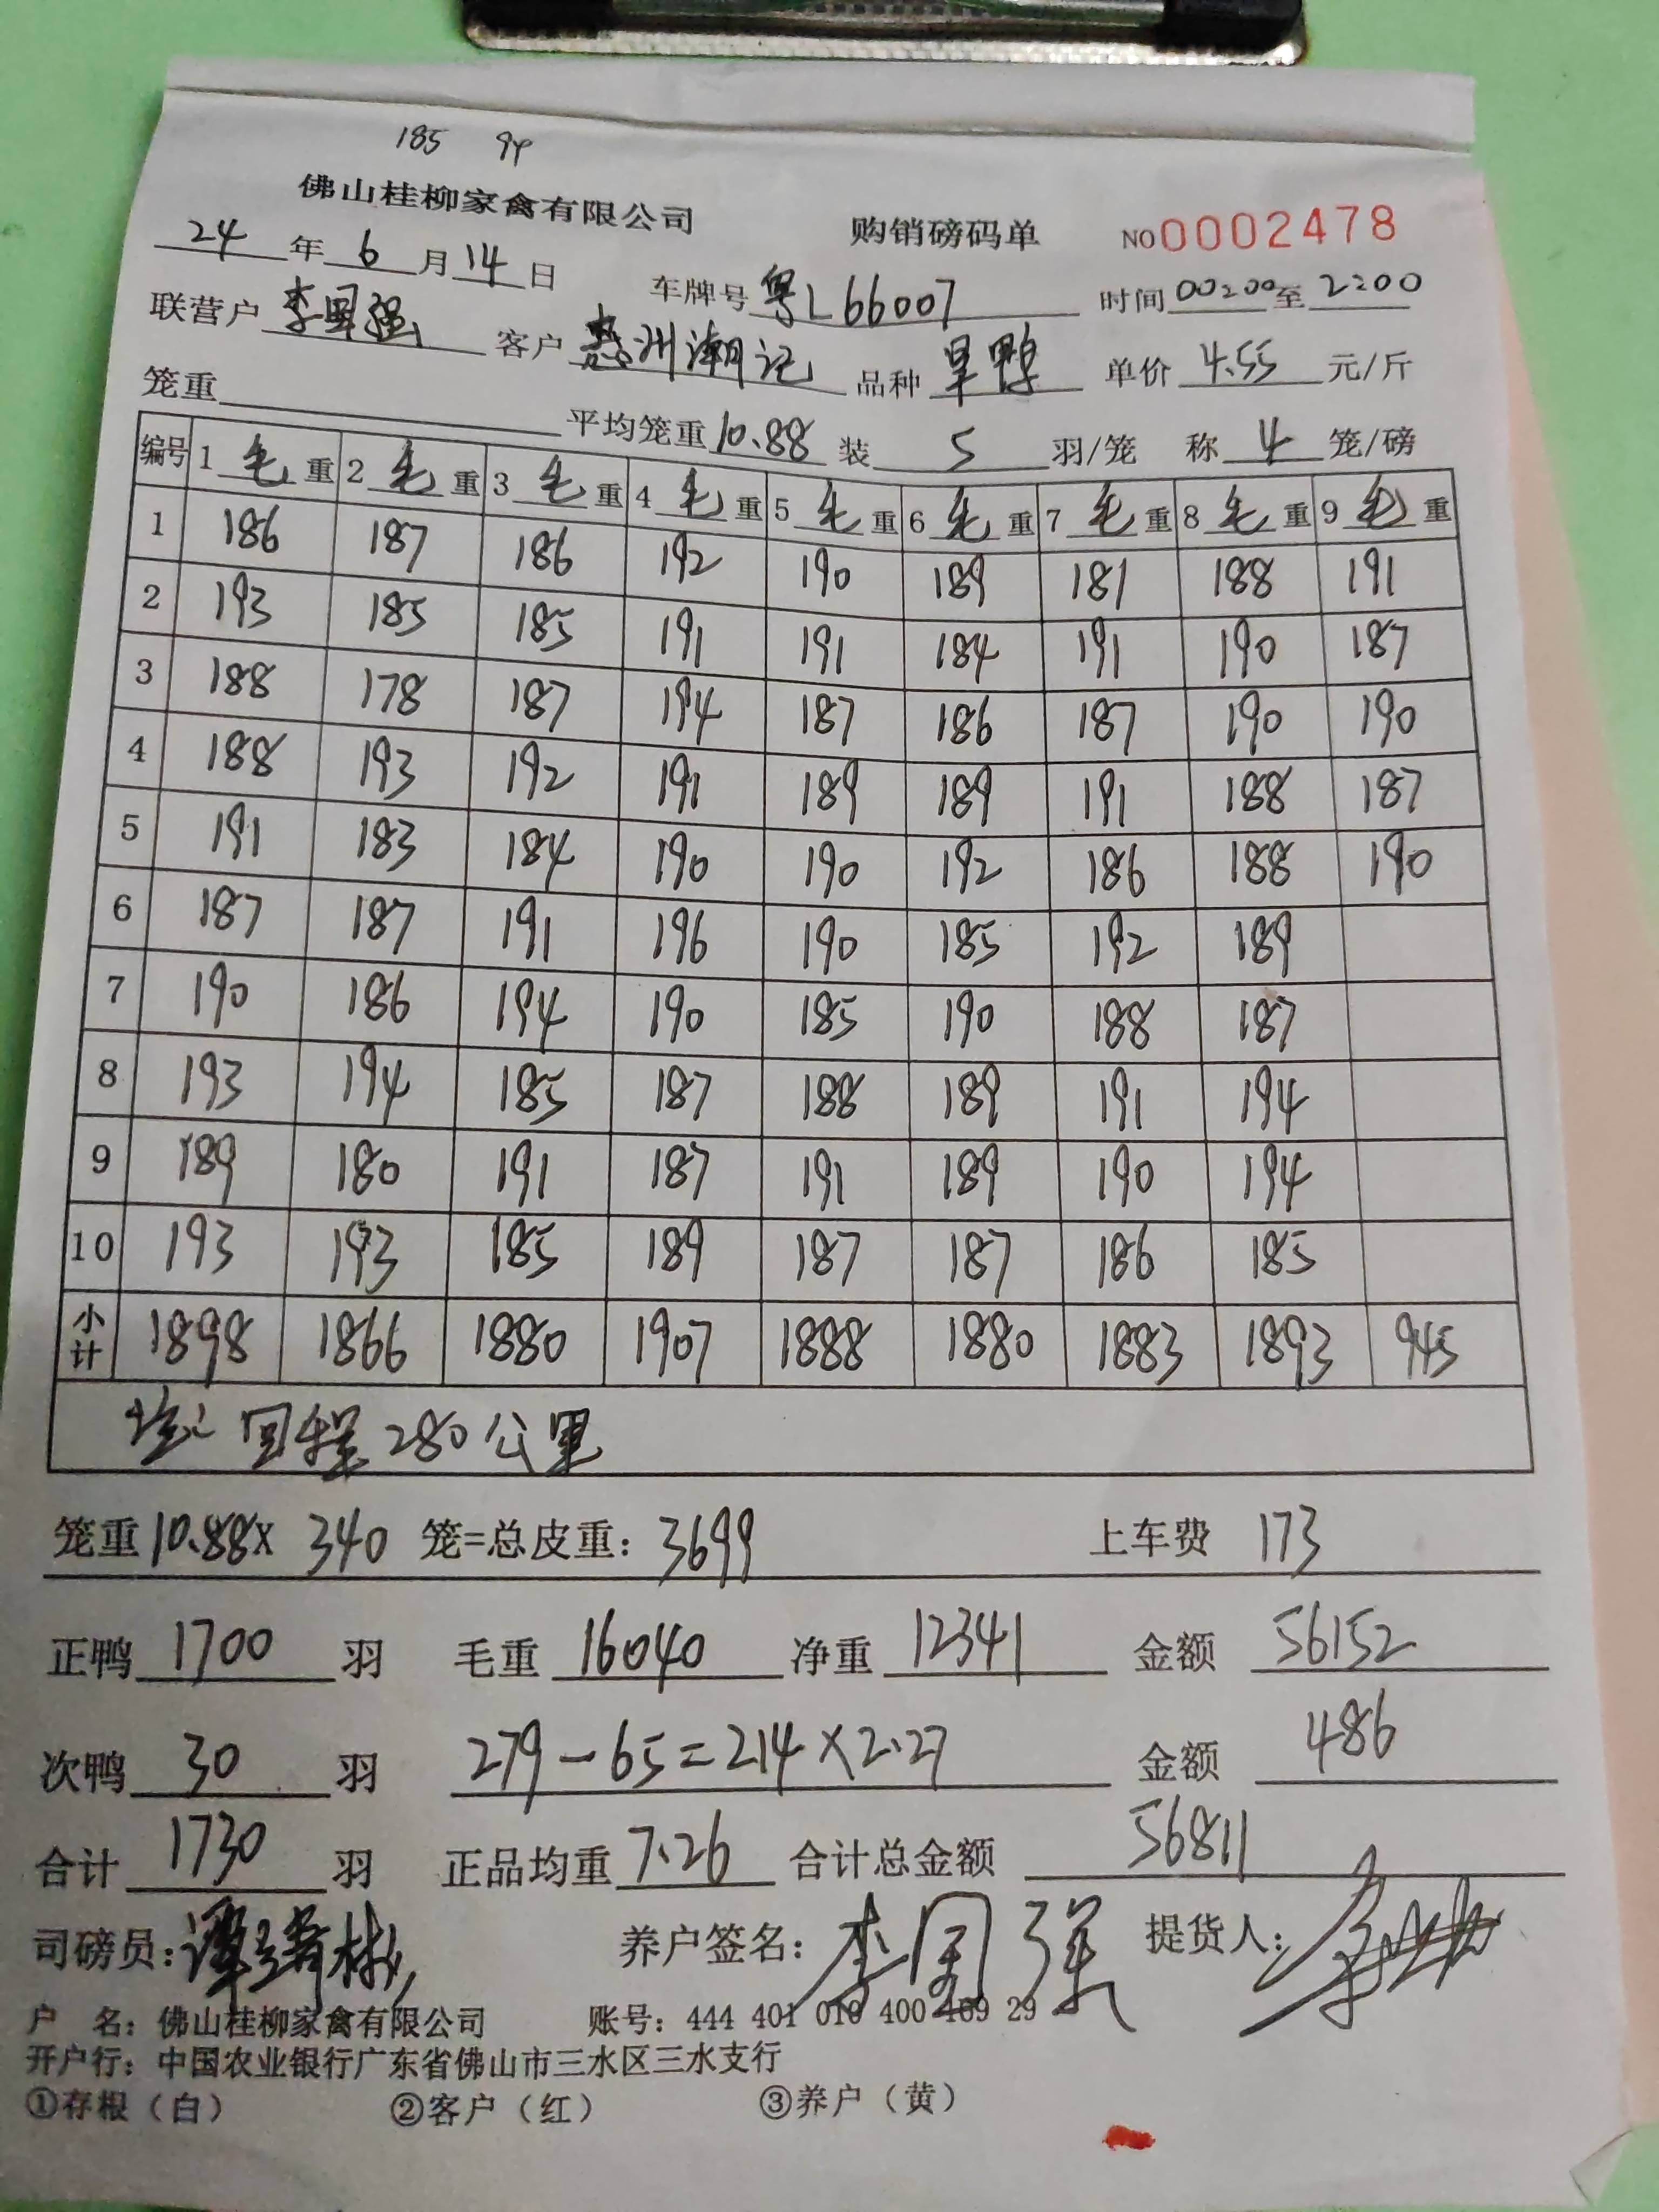 185 94
佛山桂柳家禽有限公司 购销磅码单 NO0002478
24年6月14日 车牌号粤L66007 时间00:00至2:00
联营户李国强 客户惠洲潮记 品种旱鸭 单价4.55元/斤
笼重 平均笼重10.88装5羽/笼 称4笼/磅
编号 1毛重 2毛重 3毛重 4毛重 5毛重 6毛重 7毛重 8毛重 9毛重
1 186 187 186 192 190 189 181 188 191
2 193 185 185 191 191 184 191 190 187
3 188 178 187 194 187 186 187 190 190
4 188 193 192 191 189 189 191 188 187
5 191 183 184 190 190 192 186 188 190
6 187 187 191 196 190 185 192 189
7 190 186 194 190 185 190 188 187
8 193 194 185 187 188 189 191 194
9 189 180 191 187 191 189 190 194
10 193 193 185 189 187 187 186 185
小计 1898 1866 1880 1907 1888 1880 1883 1893 945
回程280公里
笼重10.88X 340 笼=总皮重：3699 上车费 173
正鸭1700羽 毛重16040净重12341 金额56152
次鸭30羽 279-65=214×2.27 金额486
合计1730羽 正品均重7.26 合计总金额56811
司磅员： 养户签名：李国强 提货人：
户 名：佛山桂柳家禽有限公司 账号：444 401 010 400 469 29
开户行：中国农业银行广东省佛山市三水区三水支行
①存根（白） ②客户（红） ③养户（黄）